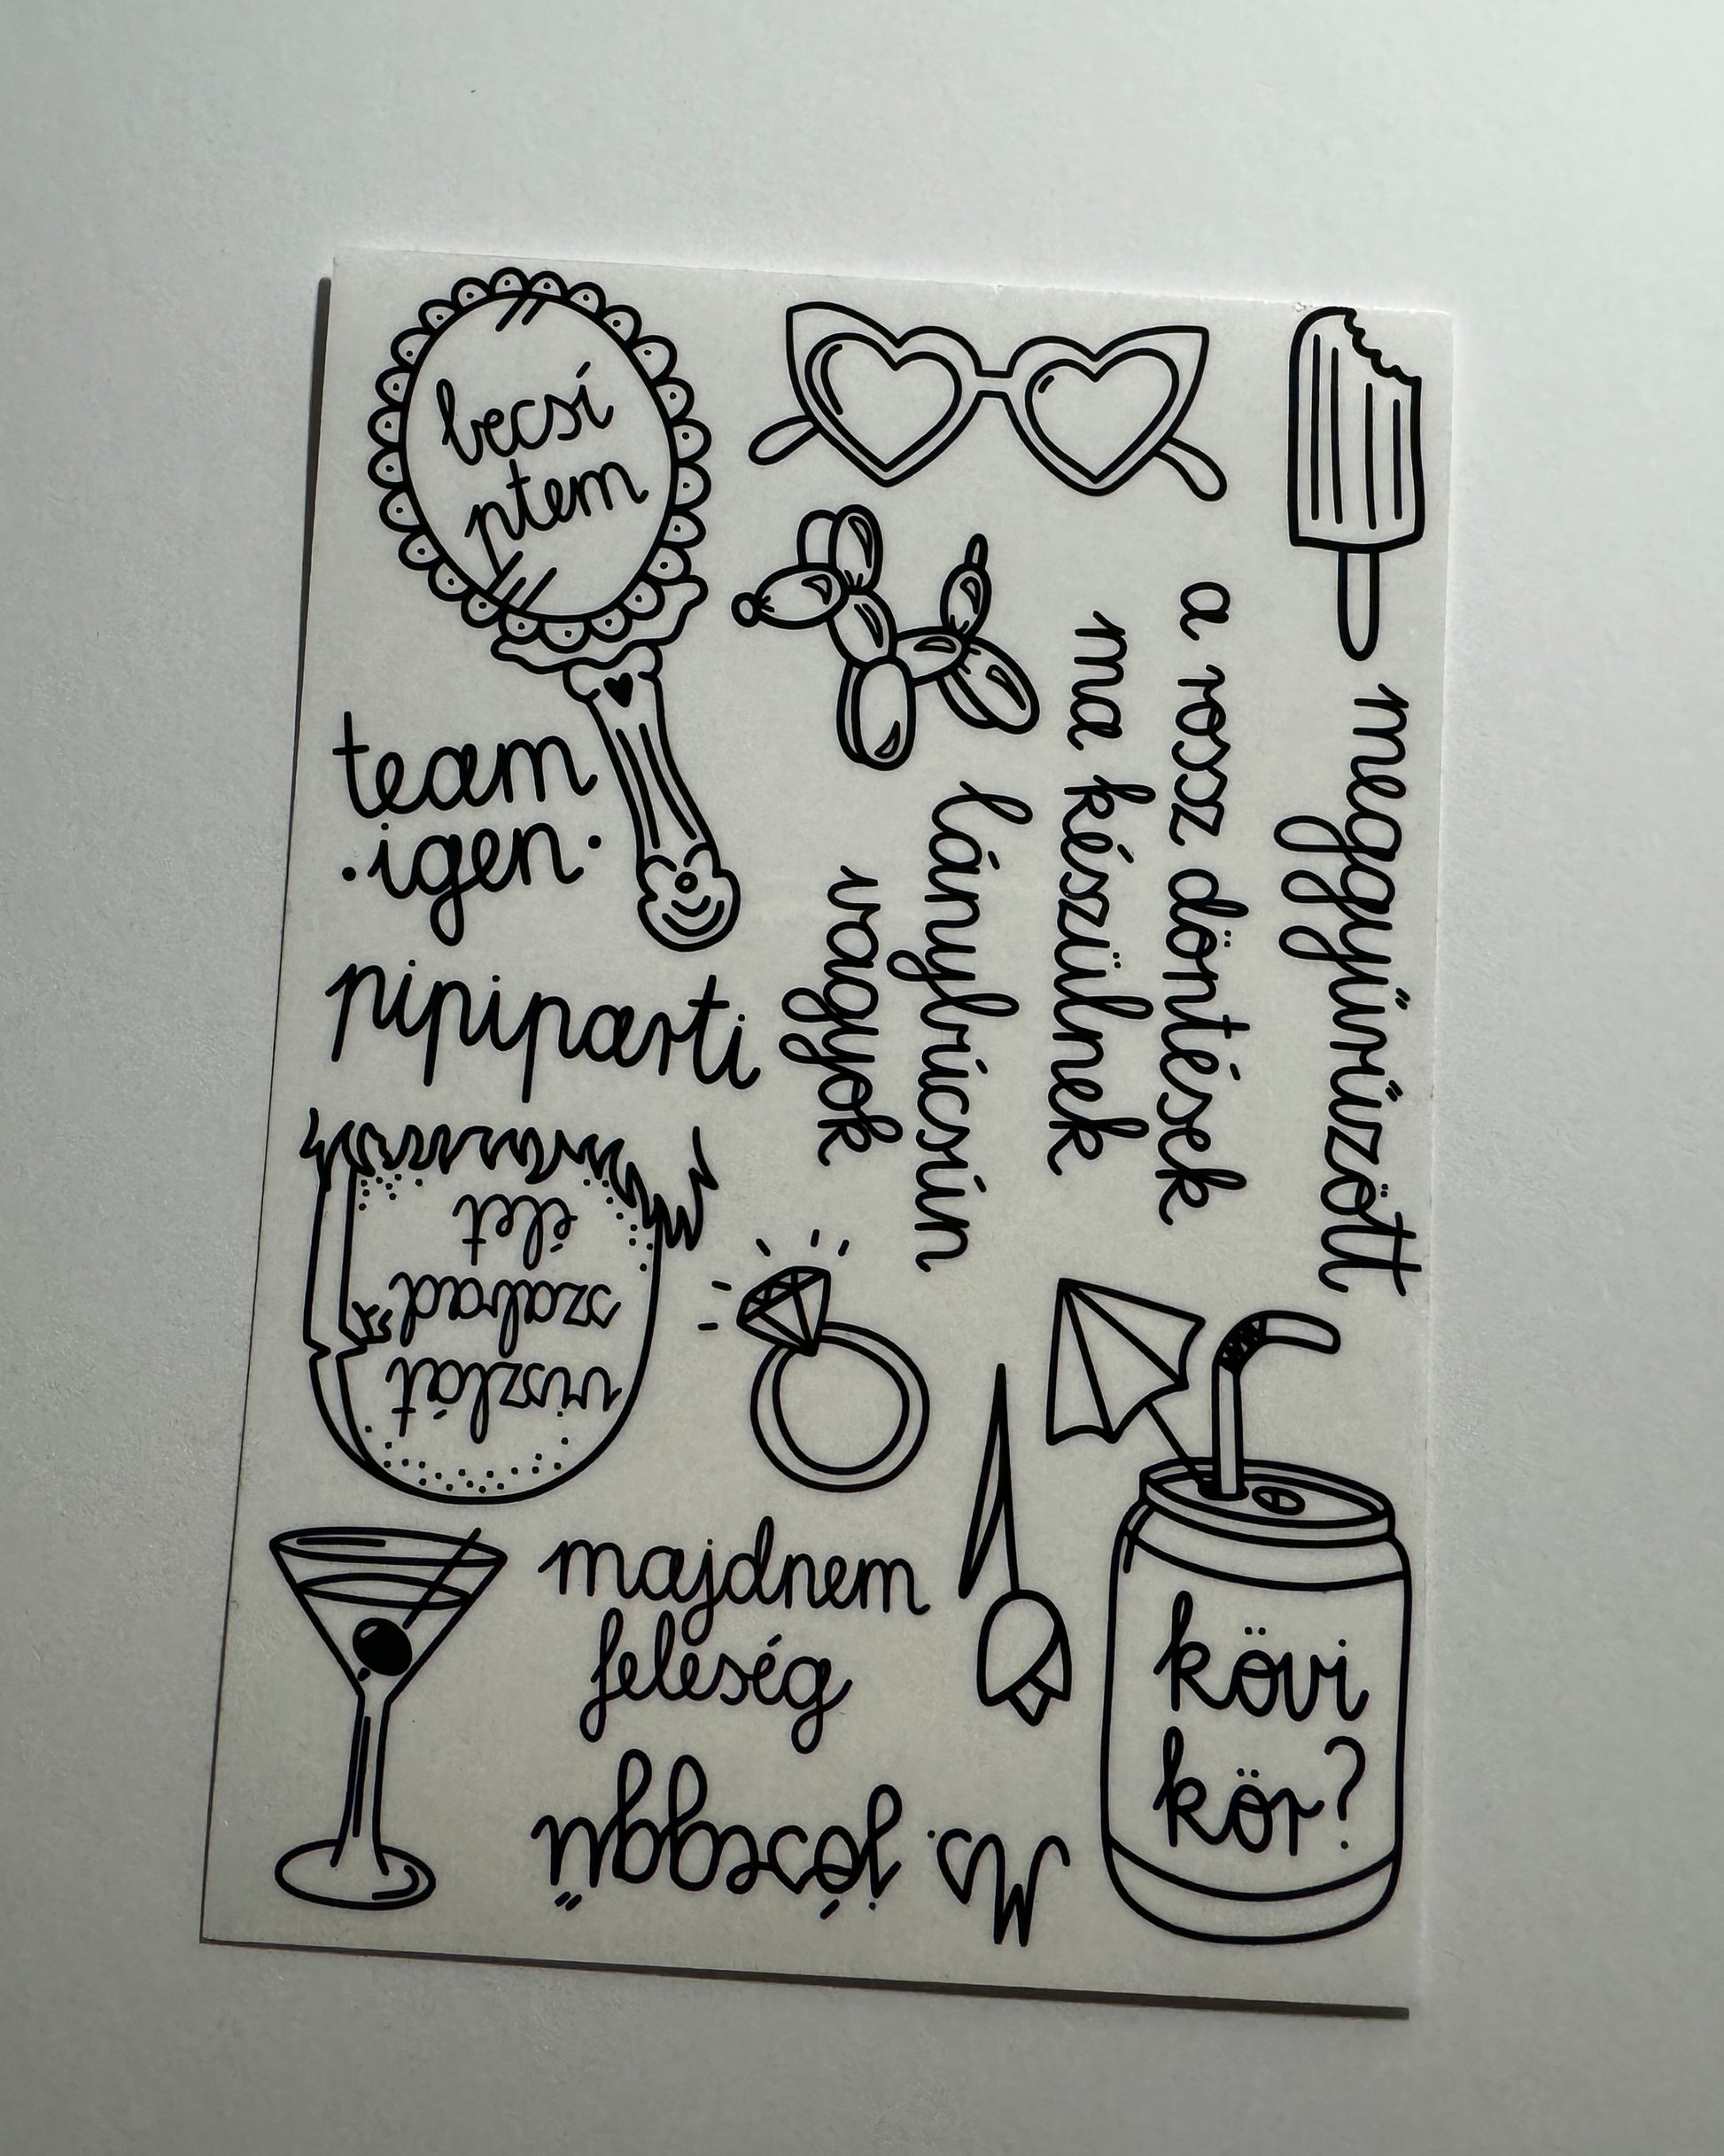 becsí
ptem
team
·igen·
pipiparti
a rossz döntések
ma készülnek
lánybúcsún
vagyok
meggyűrűzött
viszlát
szabad
élet
majdnem
feleség
Ms. jóseggű
kövi
kör?